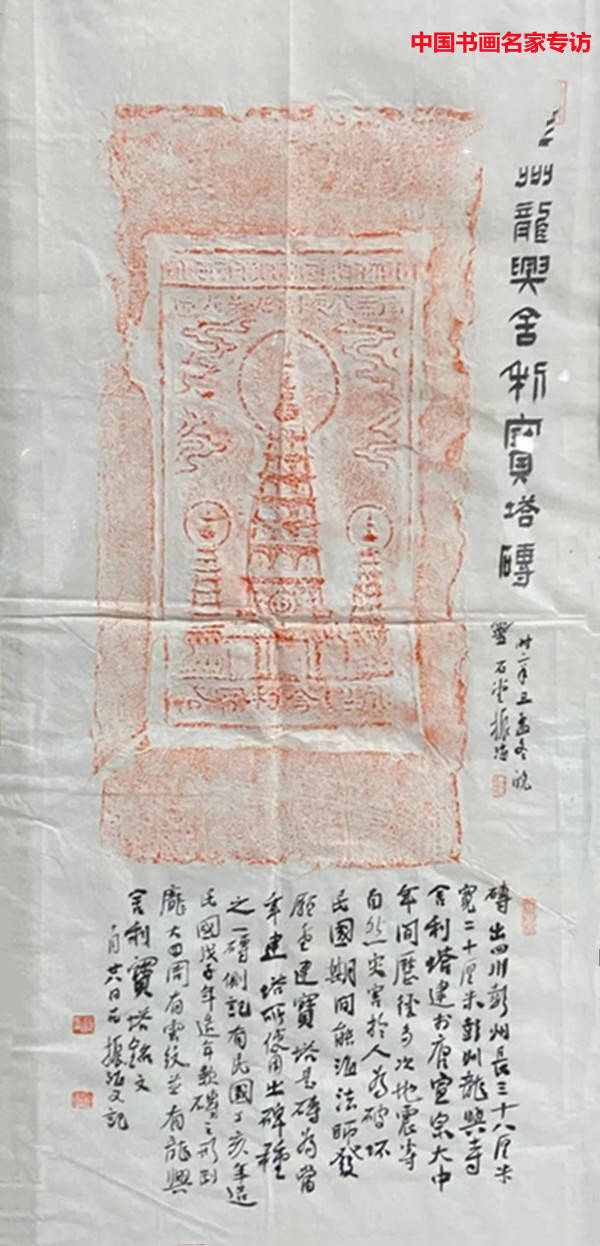 中国书画名家专访
州龍興舍利寶塔磚
磚出四川彭州長三十八厘米
寬二十厘米彭州龍興寺
舍利塔建於唐宣宗大中
年間歷經多次地震等
自然災害於人為破坏
民國期間能海法師發
願重建寶塔是磚為當
年建塔所使用之磚種
之一磚側記有民國丁亥年造
民國戊子年造年款磚之形到
龐大四周有雲紋並有龍興
舍利寶塔銘文